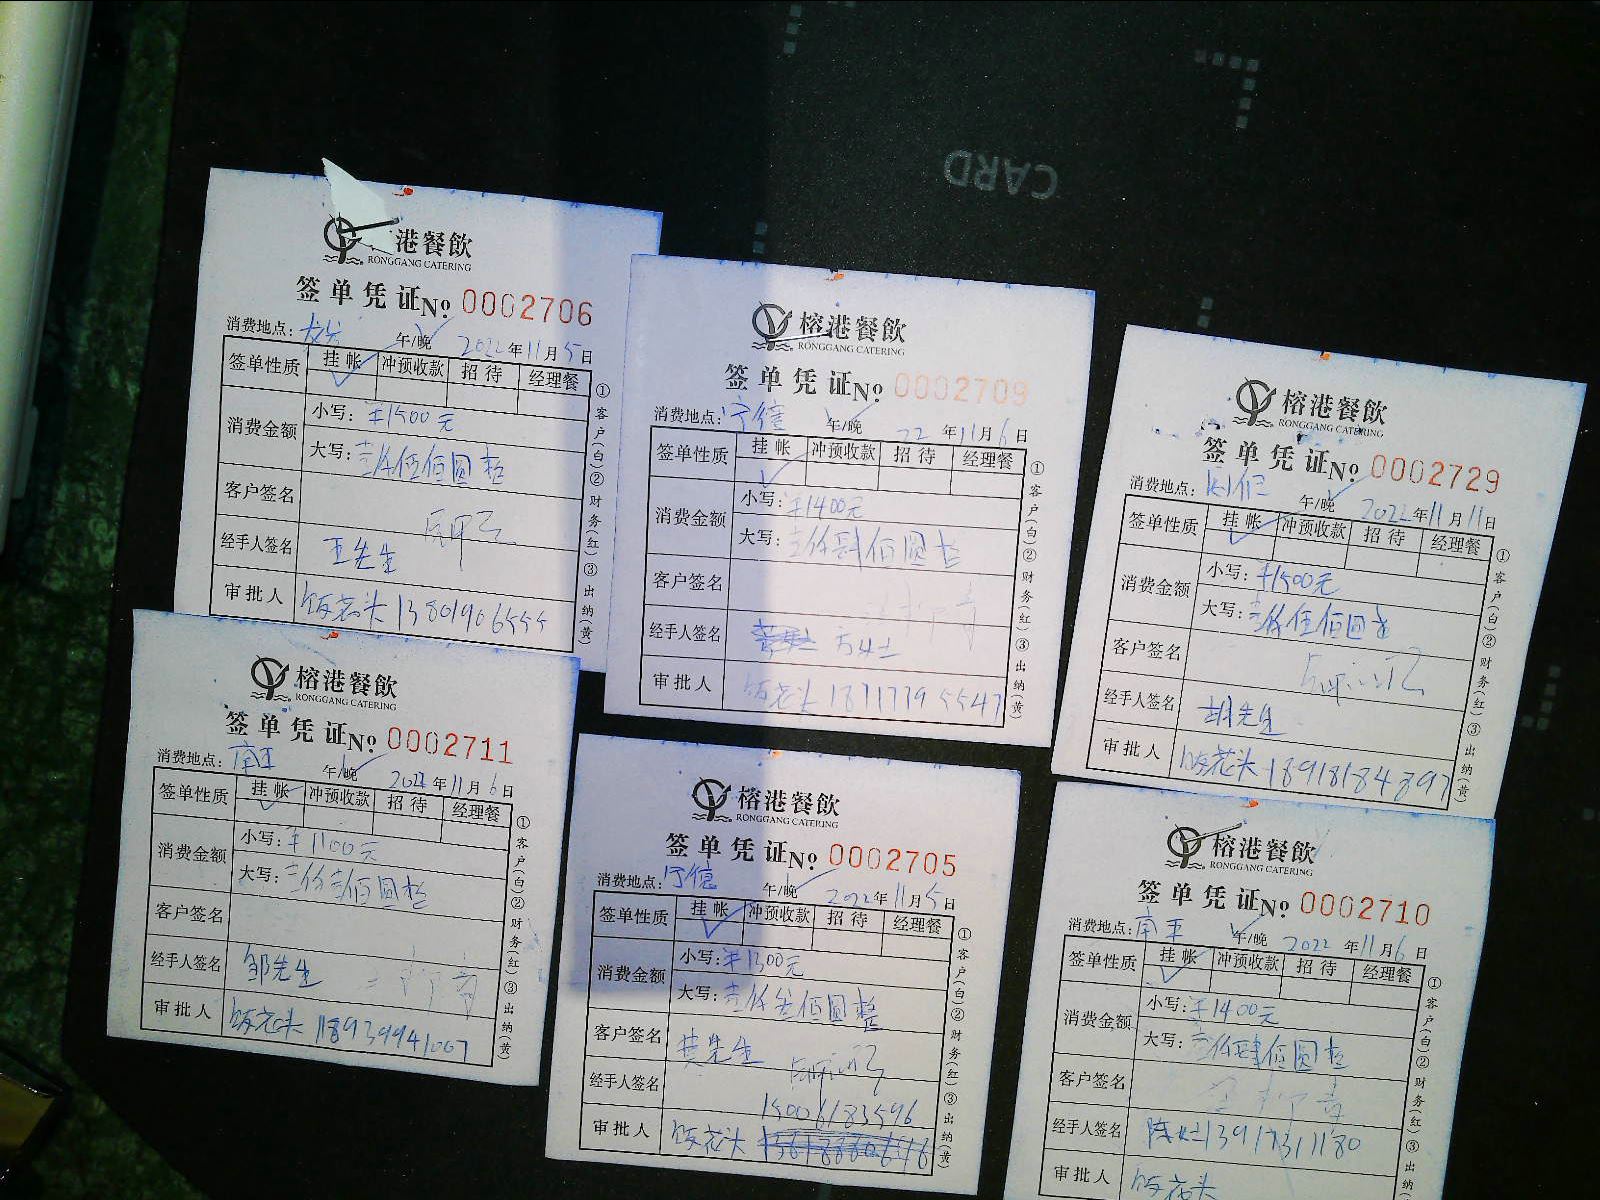 CARD
港餐飲
RONGGANG CATERING
签单凭证№ 0002706
消费地点: 午/晚 2022年11月5日
签单性质 挂帐 冲预收款 招待 经理餐
消费金额 小写: ¥1500元
大写: 壹仟伍佰圆整
客户签名
经手人签名 王先生
审批人 饭花头 13801906555
①客户(白)②财务(红)③出纳(黄)
榕港餐飲
RONGGANG CATERING
签单凭证№ 0002709
消费地点: 宁德 午/晚 22年11月6日
签单性质 挂帐 冲预收款 招待 经理餐
消费金额 小写: ¥1400元
大写: 壹仟肆佰圆整
客户签名
经手人签名 方女士
审批人 饭花头 18717795547
①客户(白)②财务(红)③出纳(黄)
榕港餐飲
RONGGANG CATERING
签单凭证№ 0002729
消费地点: 午/晚 2022年11月11日
签单性质 挂帐 冲预收款 招待 经理餐
消费金额 小写: ¥1500元
大写: 壹仟伍佰圆整
客户签名
经手人签名 胡先生
审批人 饭花头 18918184897
①客户(白)②财务(红)③出纳(黄)
榕港餐飲
RONGGANG CATERING
签单凭证№ 0002711
消费地点: 南平 午/晚 2022年11月6日
签单性质 挂帐 冲预收款 招待 经理餐
消费金额 小写: ¥1100元
大写: 壹仟壹佰圆整
客户签名
经手人签名 邹先生
审批人 饭花头 118939941067
①客户(白)②财务(红)③出纳(黄)
榕港餐飲
RONGGANG CATERING
签单凭证№ 0002705
消费地点: 宁德 午/晚 2022年11月5日
签单性质 挂帐 冲预收款 招待 经理餐
消费金额 小写: ¥1300元
大写: 壹仟叁佰圆整
客户签名 黄先生
经手人签名 15006183596
审批人 饭花头
①客户(白)②财务(红)③出纳(黄)
榕港餐飲
RONGGANG CATERING
签单凭证№ 0002710
消费地点: 南平 午/晚 2022年11月6日
签单性质 挂帐 冲预收款 招待 经理餐
消费金额 小写: ¥1400元
大写: 壹仟肆佰圆整
客户签名
经手人签名 陈女士13917311180
审批人 饭花头
①客户(白)②财务(红)③出纳